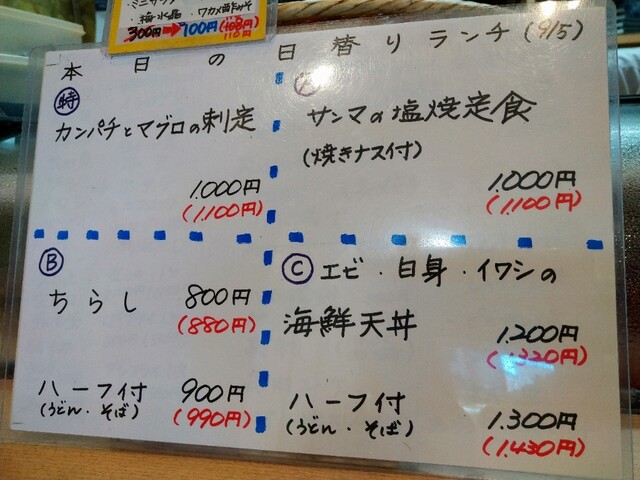 ミニサラダ
・梅水晶 ・ワカメ
300円➡100円(108)
110円
本日の日替りランチ(9/5)
特
カンパチとマグロの刺定
1.000円
(1,100円)
A
サンマの塩焼定食
(焼きナス付)
1.000円
(1,100円)
B
ちらし 800円
(880円)
ハーフ付 900円
(うどん・そば) (990円)
C エビ・白身・イワシの
海鮮天丼 1.200円
(1,320円)
ハーフ付 1.300円
(うどん・そば) (1,430円)